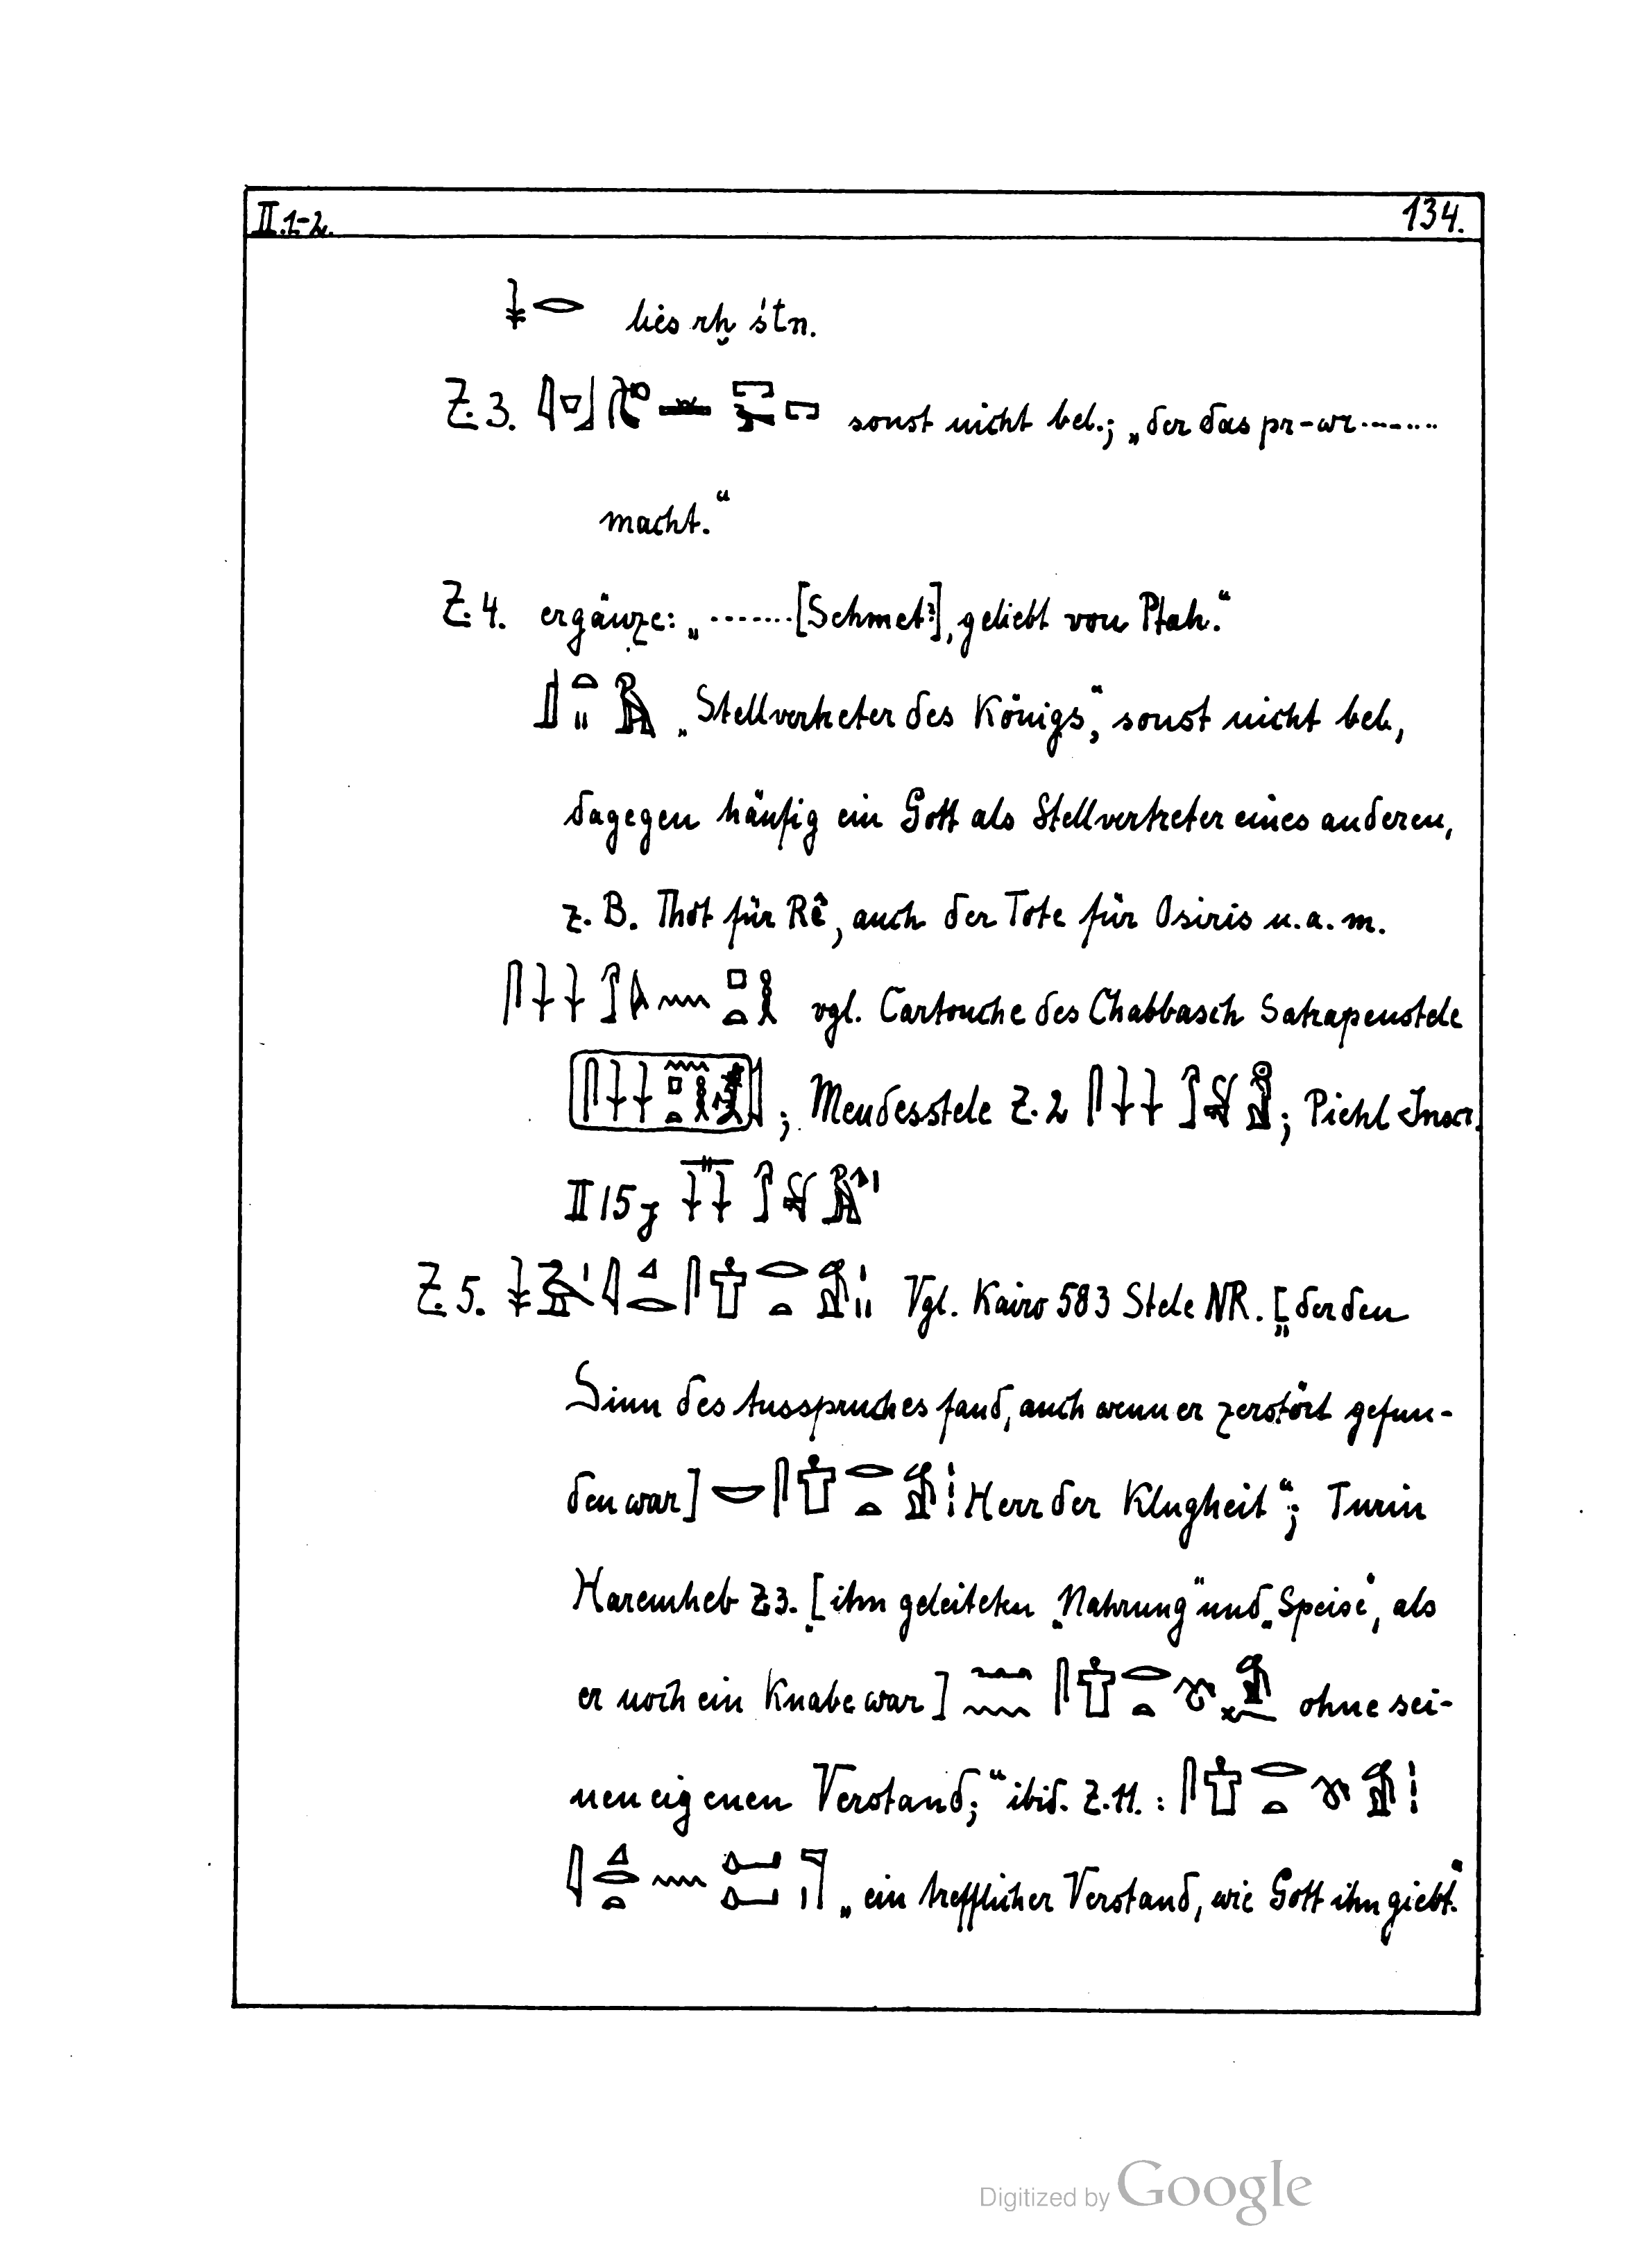 II.1-2. 134.
lies rḫ śtn.
Z. 3. sonst nicht bel.; „der das pr-wr.......
macht.“
Z. 4. ergänze: „.......[Sehmet?], geliebt von Ptah.“
„Stellvertreter des Königs“, sonst nicht bel.,
dagegen häufig ein Gott als Stellvertreter eines anderen,
z. B. Thôt für Rê, auch der Tote für Osiris u. a. m.
vgl. Cartouche des Chabbasch Satrapenstele
; Mendesstele Z. 2 ; Piehl Inscr.
II 15 z
Z. 5. Vgl. Kairo 583 Stele NR. „[der den
Sinn des Ausspruches fand, auch wenn er zerstört gefun-
den war] Herr der Klugheit“; Turin
Haremheb Z. 3. „[ihn geleiteten „Nahrung“ und „Speise“, als
er noch ein Knabe war] ohne sei-
nen eigenen Verstand;“ ibid. Z. 11. :
„ein trefflicher Verstand, wie Gott ihn giebt.“
Digitized by Google